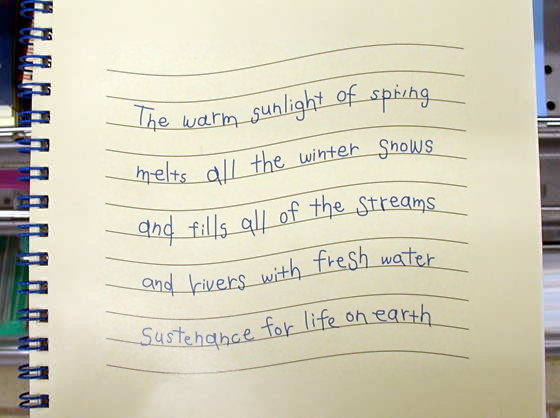 The warm sunlight of spring
melts all the winter snows
and fills all of the streams
and rivers with fresh water
Sustenance for life on earth